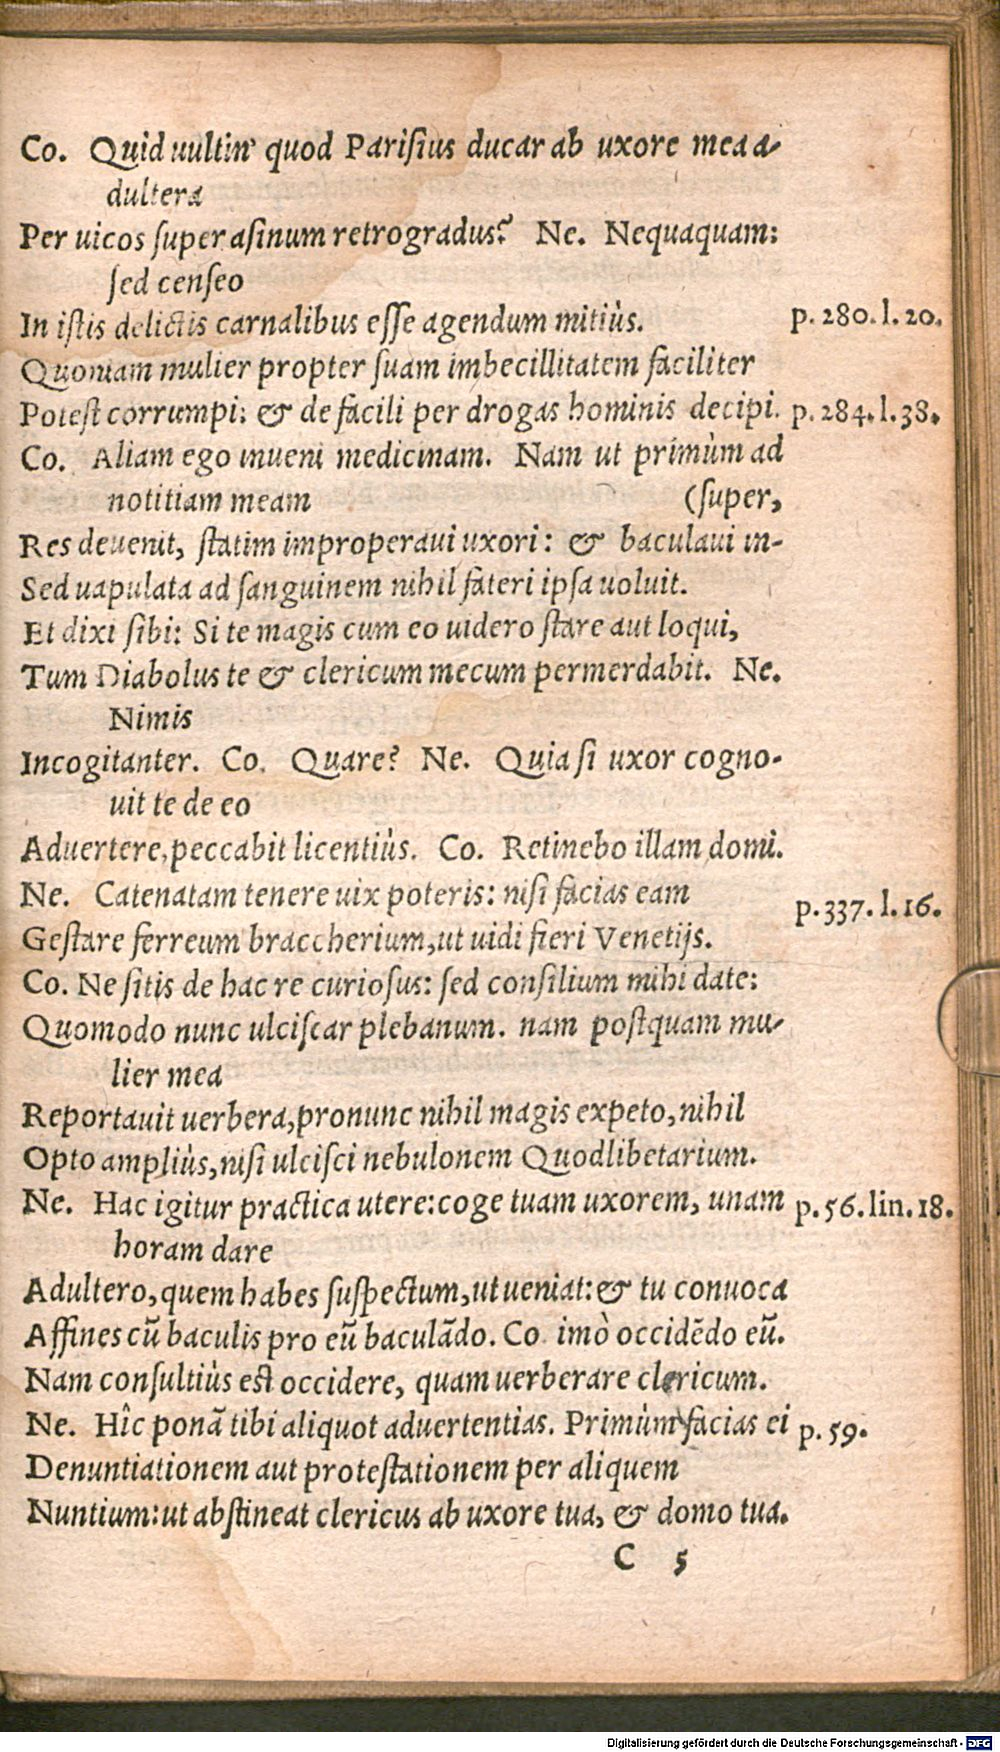 Co. Quid uultin' quod Parisius ducar ab uxore mea a-
dultera
Per uicos super asinum retrogradus? Ne. Nequaquam:
sed censeo
In istis delictis carnalibus esse agendum mitiùs. p. 280. l. 20.
Quoniam mulier propter suam imbecillitatem faciliter
Potest corrumpi: & de facili per drogas hominis decipi. p. 284. l. 38.
Co. Aliam ego inueni medicinam. Nam ut primùm ad
notitiam meam (super,
Res deuenit, statim improperaui uxori: & baculaui in-
Sed uapulata ad sanguinem nihil fateri ipsa uoluit.
Et dixi sibi: Si te magis cum eo uidero stare aut loqui,
Tum Diabolus te & clericum mecum permerdabit. Ne.
Nimis
Incogitanter. Co. Quare? Ne. Quia si uxor cogno-
uit te de eo
Aduertere, peccabit licentiùs. Co. Retinebo illam domi.
Ne. Catenatam tenere uix poteris: nisi facias eam
p. 337. l. 16.
Gestare ferreum braccherium, ut uidi fieri Venetijs.
Co. Ne sitis de hac re curiosus: sed consilium mihi date:
Quomodo nunc ulciscar plebanum. nam postquam mu-
lier mea
Reportauit uerbera, pronunc nihil magis expeto, nihil
Opto ampliùs, nisi ulcisci nebulonem Quodlibetarium.
Ne. Hac igitur practica utere: coge tuam uxorem, unam p. 56. lin. 18.
horam dare
Adultero, quem habes suspectum, ut ueniat: & tu conuoca
Affines cū baculis pro eū baculādo. Co. imò occidēdo eū.
Nam consultiùs est occidere, quam uerberare clericum.
Ne. Hîc ponā tibi aliquot aduertentias. Primùm facias ei p. 59.
Denuntiationem aut protestationem per aliquem
Nuntium: ut abstineat clericus ab uxore tua, & domo tua.
C 5
Digitalisierung gefördert durch die Deutsche Forschungsgemeinschaft - DFG